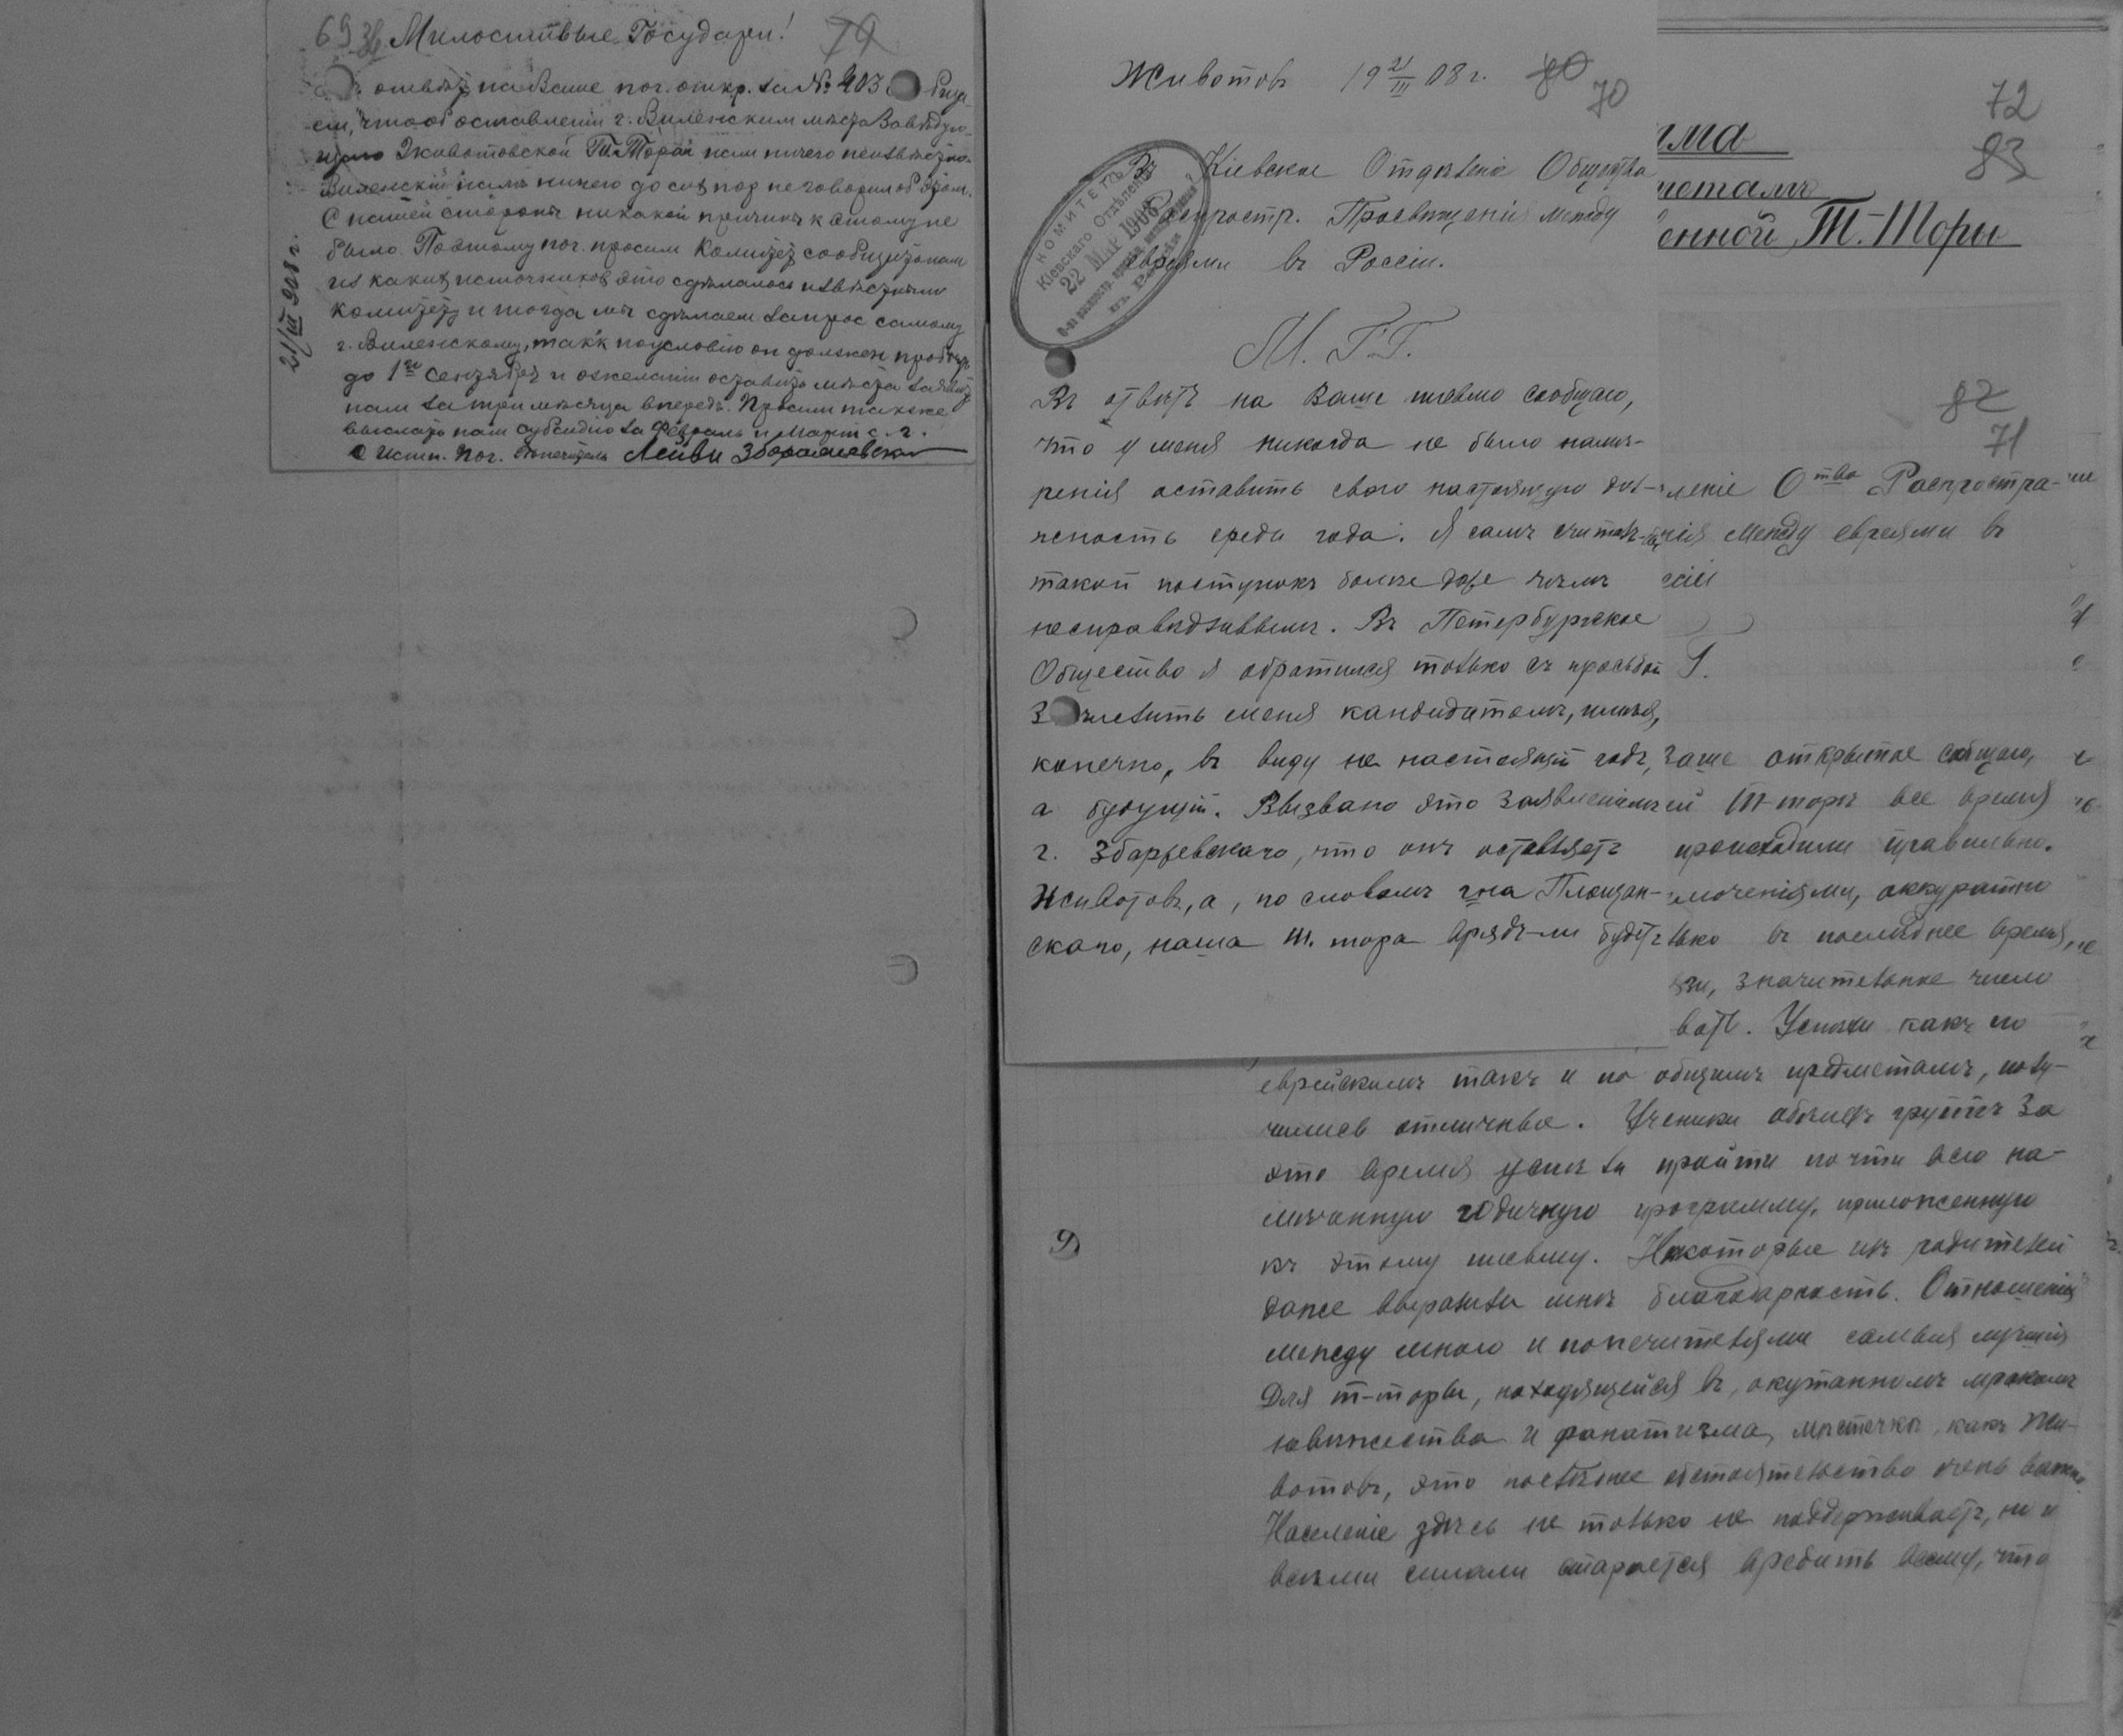 69 Милостивые Государи! 79
ответ на Ваше поч. откр. за № 203
что об оставлении г. Виленским места Заведую-
щаго Животовской Т.-Торой нам ничего неизвестно.
Виленскій нам ничего до сих пор не говорил об этом.
С нашей стороны никакой причины к этому не
было Поэтому поч. просим Комитет сообщить нам
из каких источников это сделалось известным
комитету и тогда мы сделаем запрос самому
г. Виленскому, так к по условію он должен пробыть
до 1го Сентября и о желаніи оставить места заявить
нам за три месяца вперед. Просим также
выслать нам субсидію за Февраль и Март с. г.
С истин. поч. Попечитель Лейви
21/III 908 г.
Животовъ 19 21/III 08 г. 80
70
Въ Кіевское Отдѣленіе Общества
распростр. Просвѣщенія между
евреями въ Россіи.
КОМИТЕТЪ
Кіевскаго Отдѣленія
22 МАР 1908
М. Г.Г.
Въ отвѣтъ на Ваше письмо сообщаю,
что у меня никогда не было намѣ-
ренія оставить свою настоящую дол-
жность среди года. Я самъ считалъ-бы
такой поступокъ болѣе даже чѣмъ
несправедливымъ. Въ Петербургское
Общество я обратился только съ просьбой
зачислить меня кандидатомъ, имѣя,
конечно, въ виду не настоящій годъ,
а будущій. Вызвано это заявленіемъ
г. Збаржевскаго, что онъ оставляетъ
Животовъ, а, по словамъ г-на Площан-
скаго, наша т. тора врядъ-ли будетъ
72
мма 83
метамъ
енной Т.-Торы
82
71
леніе Отва Распростра-
нія между евреями въ
сіи
Г.
Ваше открытое сообщаю,
ей т-торѣ все время
происходили правильно.
люченіями, аккуратно
лько въ последнее время,
зи, значительное число
ваетъ. Успѣхи какъ по
еврейскимъ такъ и по общимъ предметамъ, полу-
чились отличные. Ученики обѣихъ группъ за
это время успѣли пройти почти всю на-
мѣченную годичную программу, приложенную
къ этому письму. Некоторые изъ родителей
даже выразили мнѣ благодарность. Отношенія
между мною и попечителями самыя лучшія
Для т-торы, находящейся въ, окутанномъ мракомъ
невѣжества и фанатизма, мѣстечкѣ, какъ Жи-
вотовъ, это последнее обстоятельство очень важно.
Населеніе здѣсь не только не поддерживаетъ, но и
всѣми силами старается вредить всему, что